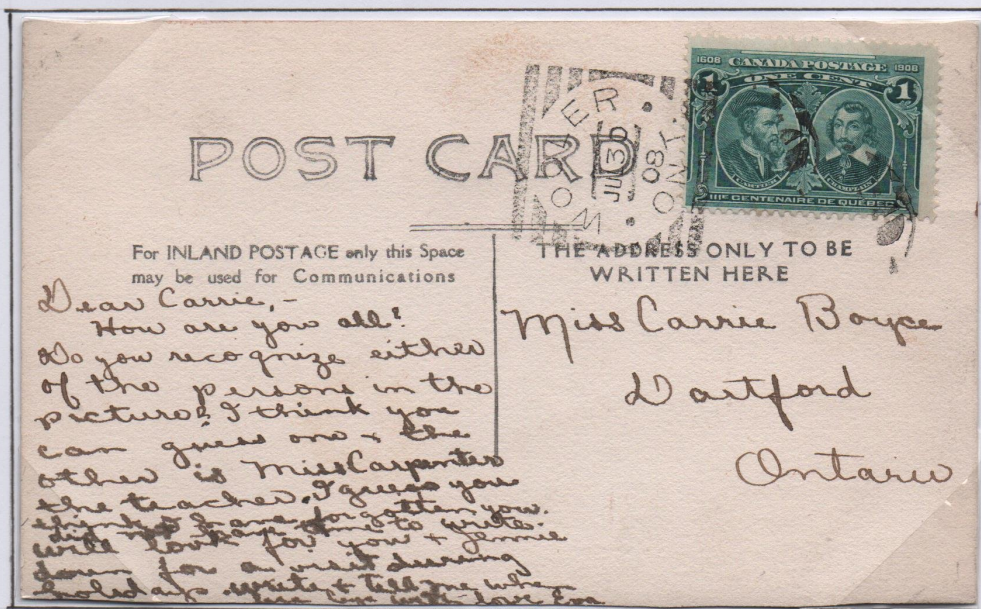 POST CARD
WOOLER
JU 30
08
ONT
1608 CANADA POSTAGE 1908
1 ONE CENT 1
CARTIER CHAMPLAIN
IIIE CENTENAIRE DE QUÉBEC
For INLAND POSTAGE only this Space
may be used for Communications
THE ADDRESS ONLY TO BE
WRITTEN HERE
Dear Carrie,-
How are you all?
Do you recognize either
of the persons in the
picture? I think you
can guess one + the
other is Miss Carpenter
the teacher. I guess you
think I have forgotten you.
did not have time to write.
will look for you + Jennie
down for an visit during
holidays write + tell me when
with love Eva
Miss Carrie Boyce
Dartford
Ontario